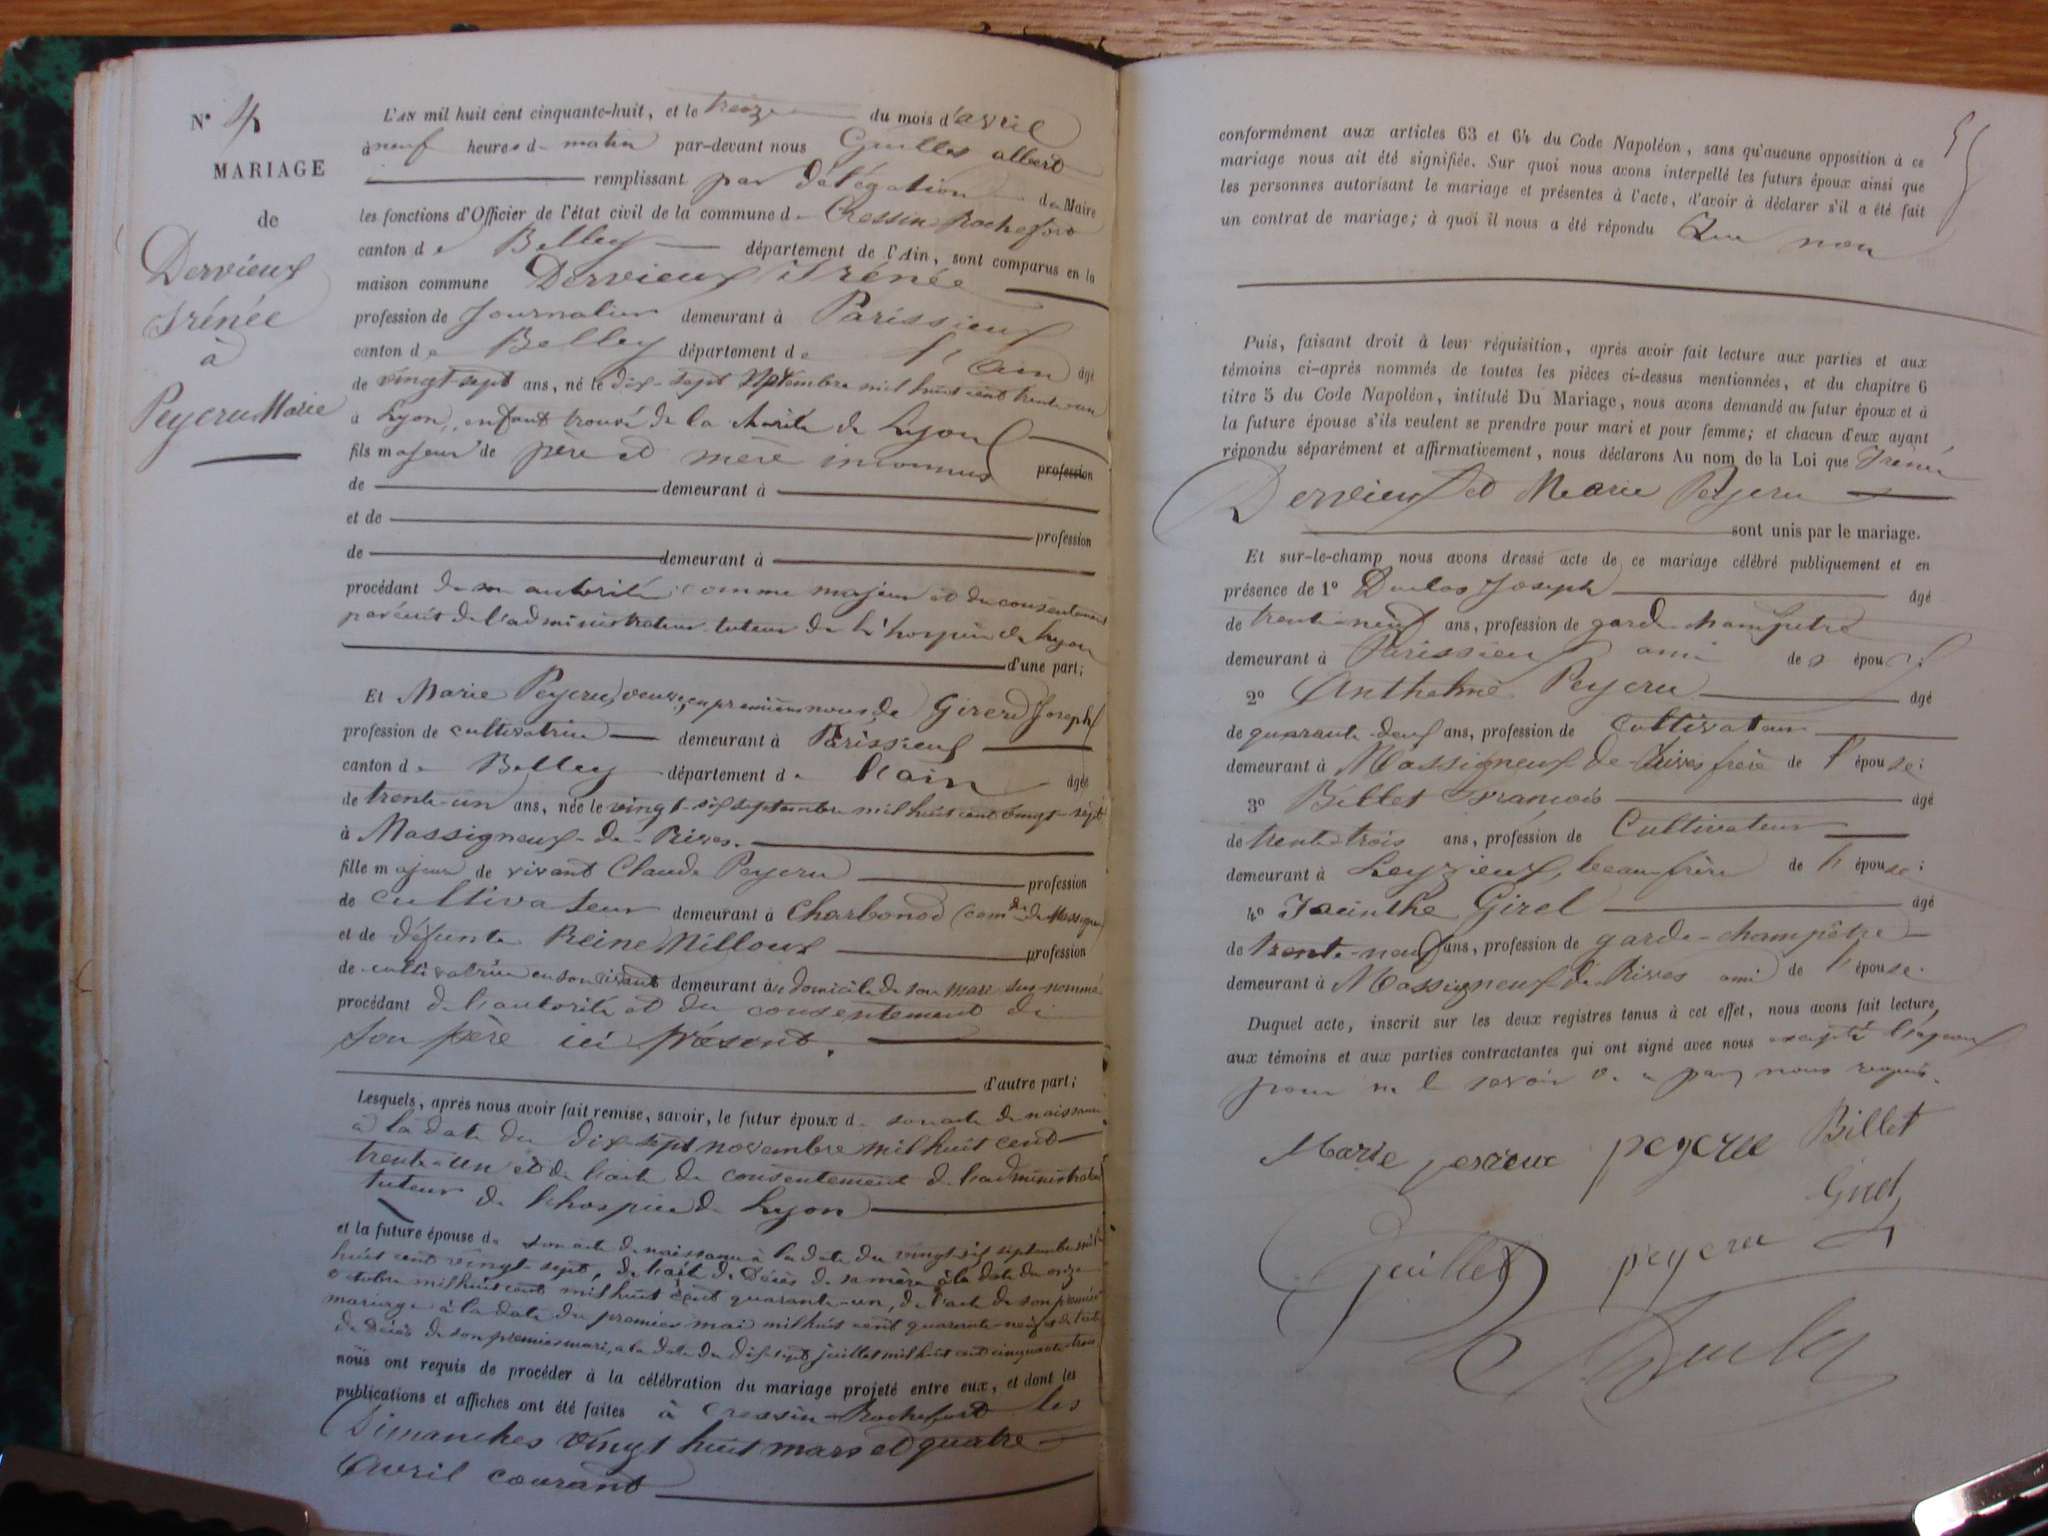 N° 4
MARIAGE
de
Dervieux
Irénée
à
Peyeru Marie
L'AN mil huit cent cinquante-huit, et le treize du mois d'avril
à neuf heures du matin par-devant nous Guillet albert
remplissant par délégation du Maire
les fonctions d'Officier de l'état civil de la commune de Cressin Rochefort
canton de Belley département de l'Ain, sont comparus en la
maison commune Dervieux Irénée
profession de Journalier demeurant à Parissieux
canton de Belley département de l'Ain âgé
de vingt-sept ans, né le dix-sept septembre mil huit cent trente-un
à Lyon, enfant trouvé de la charité de Lyon
fils majeur de père et mère inconnus profession
de demeurant à
et de profession
de demeurant à
procédant de son autorité comme majeur et du consentement
par écrit de l'administrateur tuteur de l'hospice de Lyon
d'une part;
Et Marie Peyeru, veuve en premières noces de Girerd Joseph
profession de cultivatrice demeurant à Parissieux
canton de Belley département de l'ain âgée
de trente-un ans, née le vingt-six septembre mil huit cent vingt-sept
à Massigneux-de-Rives.
fille majeure de vivant Claude Peyeru profession
de cultivateur demeurant à Charbonod (com de Massigneux)
et de défunte Reine Milloux profession
de cultivatrice en son vivant demeurant au domicile de son mari sus-nommé
procédant de l'autorité et du consentement de
son père ici présent.
d'autre part;
Lesquels, après nous avoir fait remise, savoir, le futur époux de son acte de naissance
à la date du dix-sept novembre mil huit cent
trente-un et de l'acte de consentement de l'administrateur
tuteur de l'hospice de Lyon
et la future épouse de son acte de naissance à la date du vingt-six septembre mil
huit cent vingt-sept, de l'acte de décès de sa mère à la date du onze
octobre mil huit cent mil huit cent quarante-un, de l'acte de son premier
mariage à la date du premier mai mil huit cent quarante-neuf et de l'acte
de décès de son premier mari, à la date du dix-sept juillet mil huit cent cinquante-trois
nous ont requis de procéder à la célébration du mariage projeté entre eux, et dont les
publications et affiches ont été faites à Cressin-Rochefort les
Dimanches vingt huit mars et quatre
Avril courant
conformément aux articles 63 et 64 du Code Napoléon, sans qu'aucune opposition à ce
mariage nous ait été signifiée. Sur quoi nous avons interpellé les futurs époux ainsi que
les personnes autorisant le mariage et présentes à l'acte, d'avoir à déclarer s'il a été fait
un contrat de mariage; à quoi il nous a été répondu Que non
Puis, faisant droit à leur réquisition, après avoir fait lecture aux parties et aux
témoins ci-après nommés de toutes les pièces ci-dessus mentionnées, et du chapitre 6
titre 5 du Code Napoléon, intitulé Du Mariage, nous avons demandé au futur époux et à
la future épouse s'ils veulent se prendre pour mari et pour femme; et chacun d'eux ayant
répondu séparément et affirmativement, nous déclarons Au nom de la Loi que Irénée
Dervieux et Marie Peyeru
sont unis par le mariage.
Et sur-le-champ nous avons dressé acte de ce mariage célébré publiquement et en
présence de 1° Duclos Joseph âgé
de trente-neuf ans, profession de garde champêtre
demeurant à Parissieux ami des époux;
2° Anthelme Peyeru âgé
de quarante-deux ans, profession de Cultivateur
demeurant à Massigneux-de-Rives frère de l'épouse;
3° Billet François âgé
de trente-trois ans, profession de Cultivateur
demeurant à Leyzieux, beau-frère de l'épouse;
4° Jacinthe Girel âgé
de trente-neuf ans, profession de garde-champêtre
demeurant à Massigneux de Rives ami de l'épouse.
Duquel acte, inscrit sur les deux registres tenus à cet effet, nous avons fait lecture,
aux témoins et aux parties contractantes qui ont signé avec nous excepté l'époux
pour ne le savoir de ce par nous requis.
Marie peyeru Billet
Girel
Guillet peyeru
Duclos